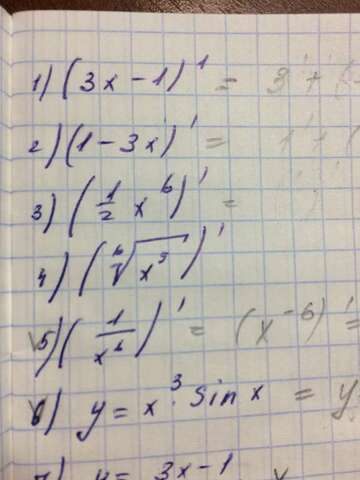 1) (3x - 1)' = 3' + (
2) (1 - 3x)' = 1' + (
3) (1/2 x^6)' =
4) (∜x^3)'
5) (1/x^6)' = (x^-6)' =
6) y = x^3 · sin x = y
7) y = 3x - 1